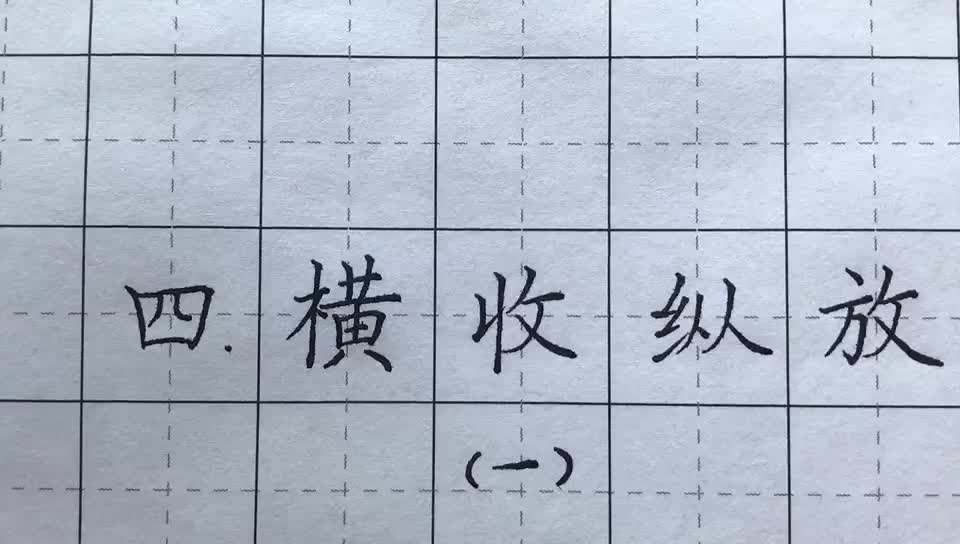 四.横收纵放
(一)